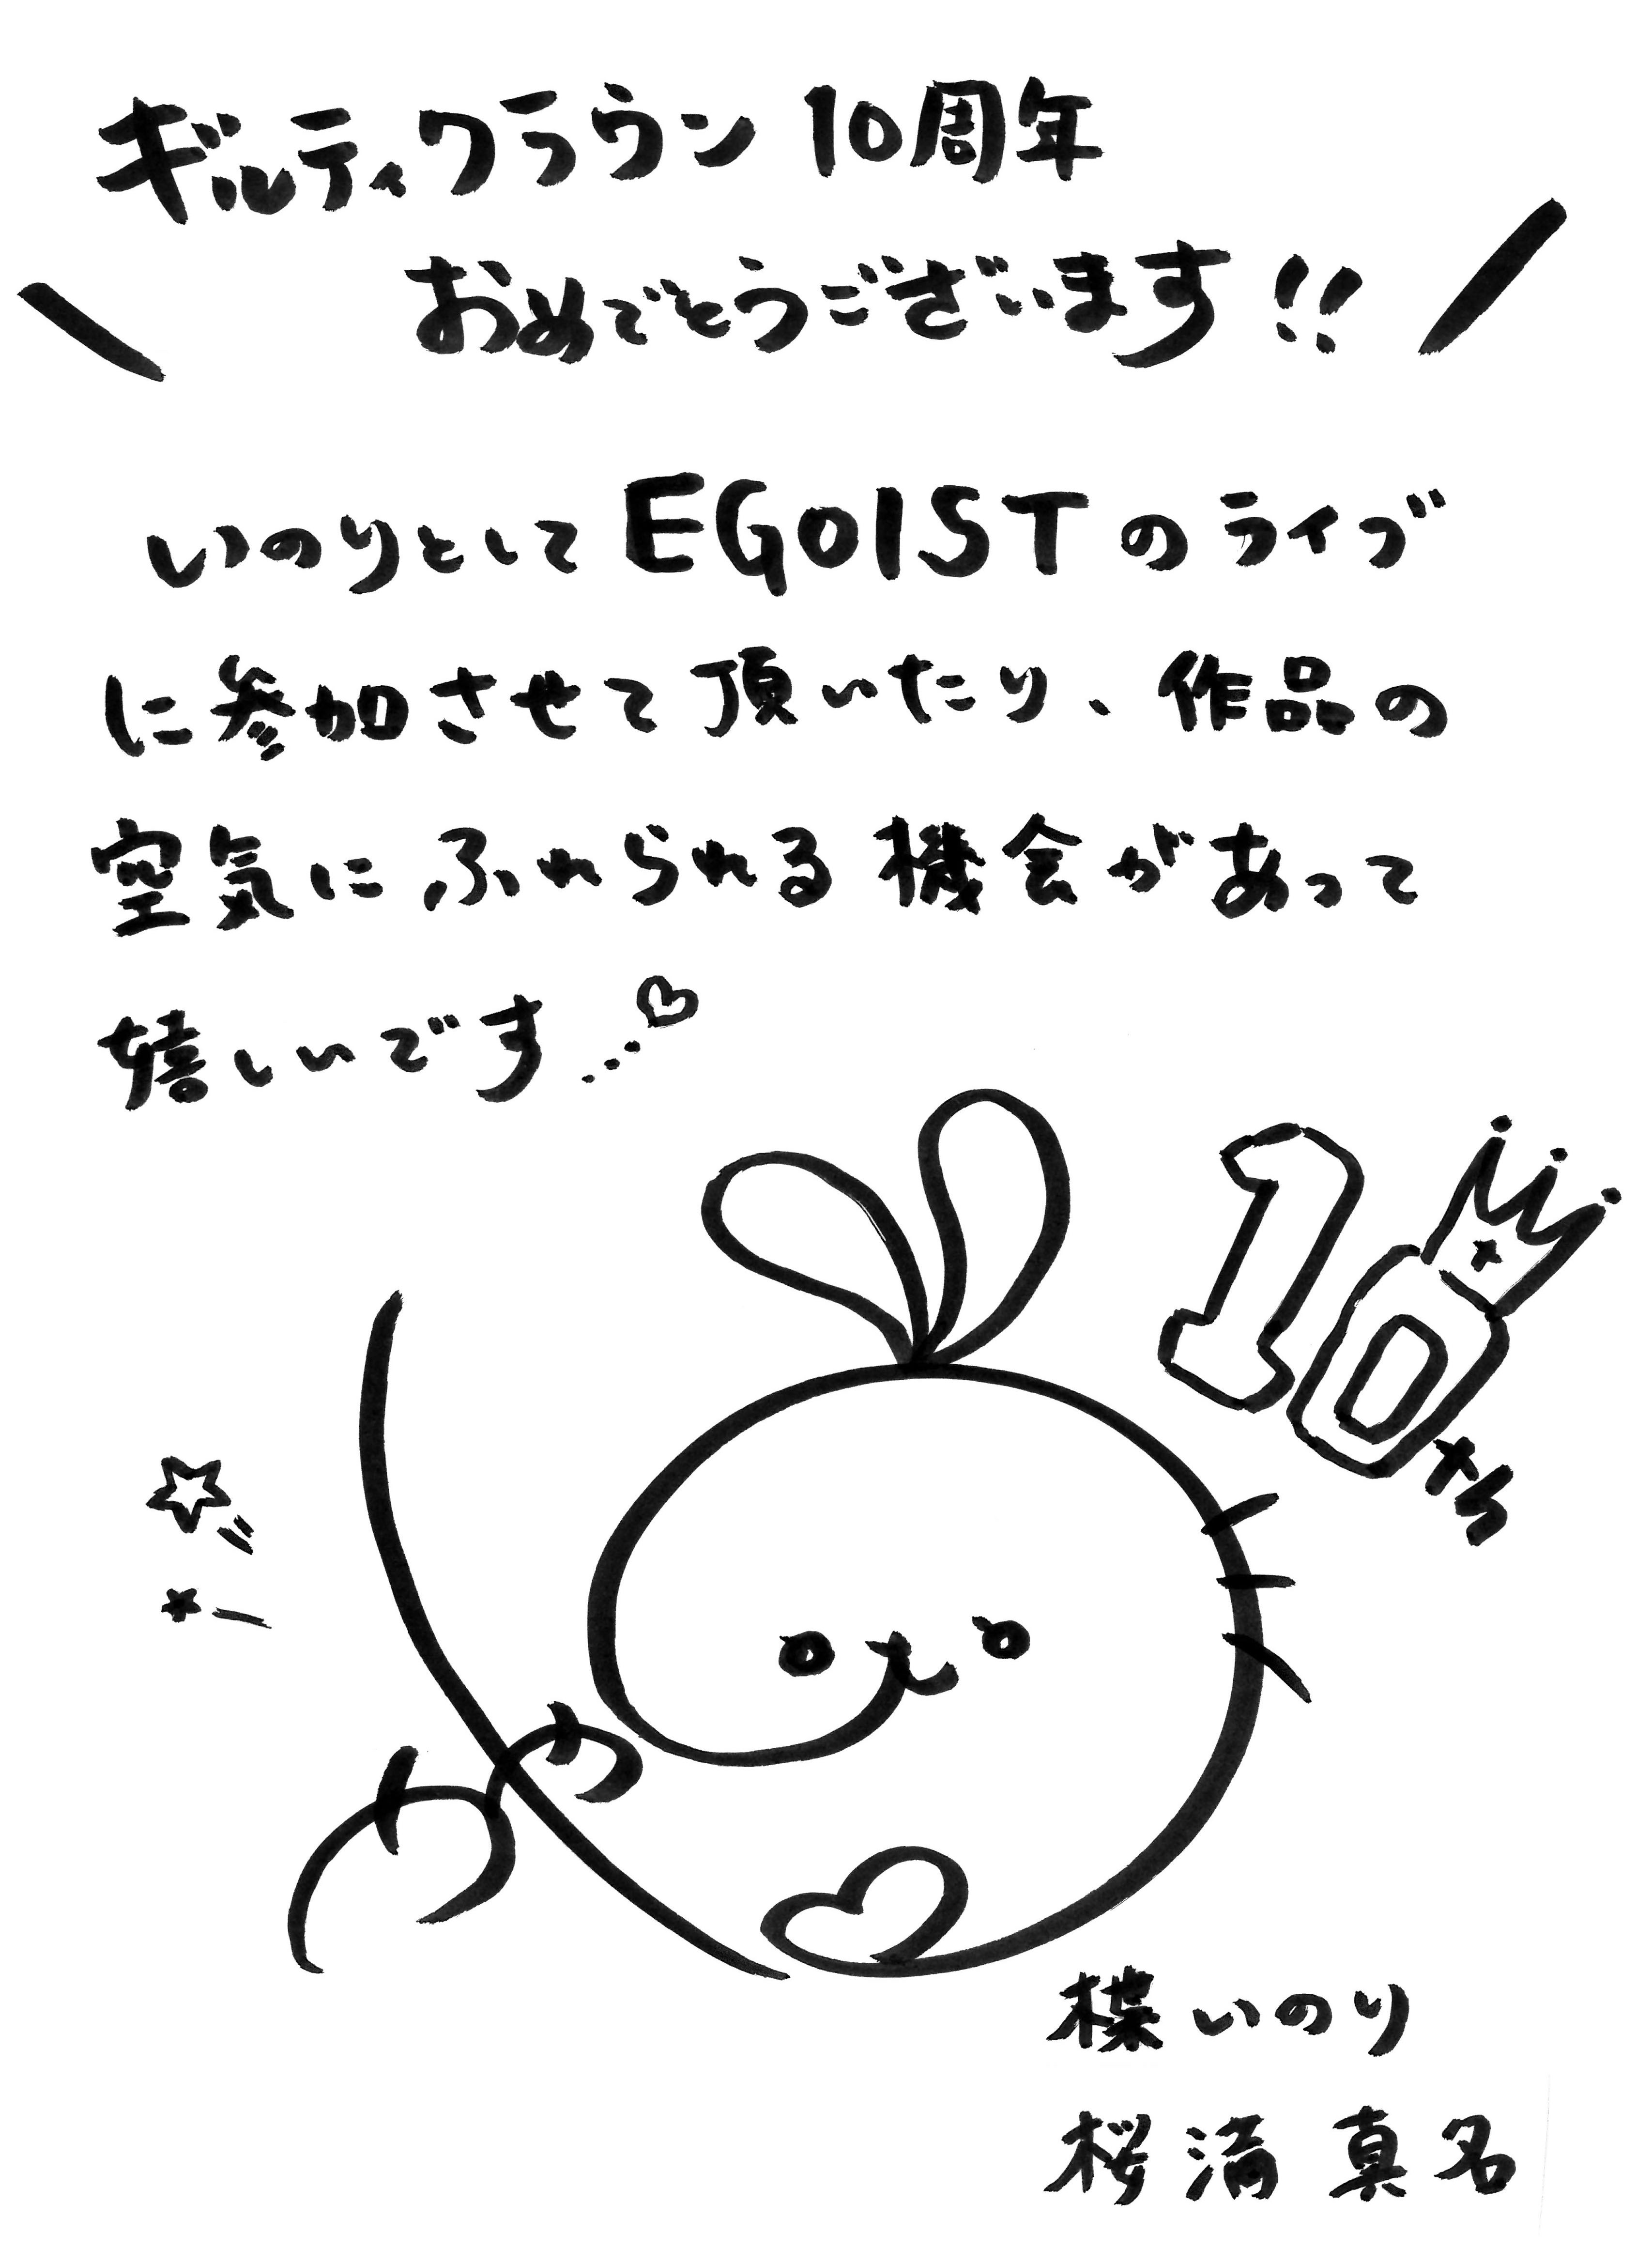 ギルティクラウン 10周年
おめでとうございます!!
いのりとして EGOIST のライブ
に参加させて頂いたり、作品の
空気に ふれられる 機会があって
嬉しいです…♡
10th
楪いのり
桜満 真名